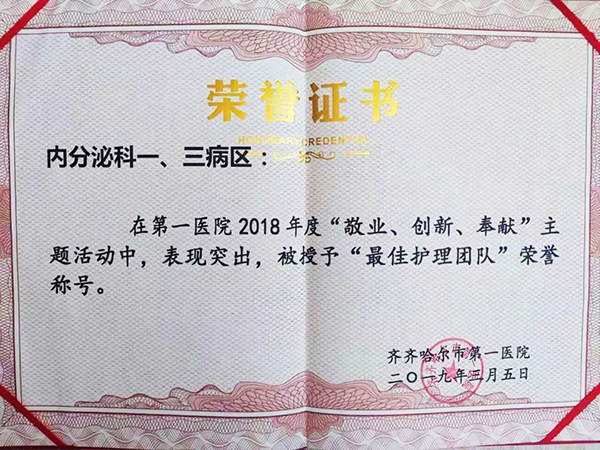 荣誉证书
HONORARY CREDENTIAL
内分泌科一、三病区：
在第一医院2018年度“敬业、创新、奉献”主
题活动中，表现突出，被授予“最佳护理团队”荣誉
称号。
齐齐哈尔市第一医院
二〇一九年三月五日